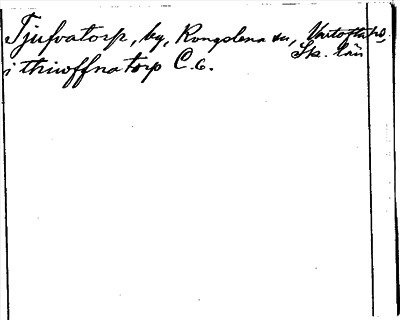 Tjufvatorp, by, Kongslena sn, Vartofta hd.
Sk. län
i thiuoffna torp C. 6.